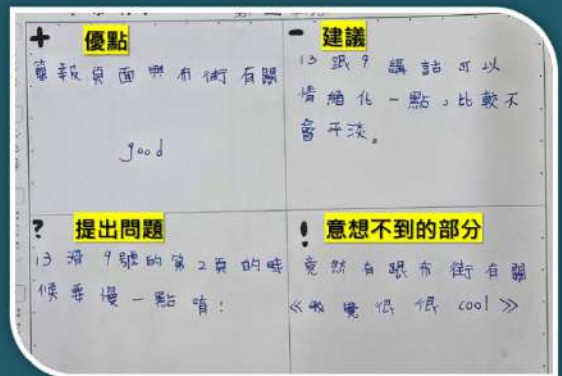 + 優點
簡報頁面與布街有關
good
- 建議
13 跟 9 講話可以
情緒化一點，比較不
會平淡。
? 提出問題
13 
9號的第2頁的時
候要慢一點唷!
! 意想不到的部分
竟然有跟布街有關
《感覺很很 cool》